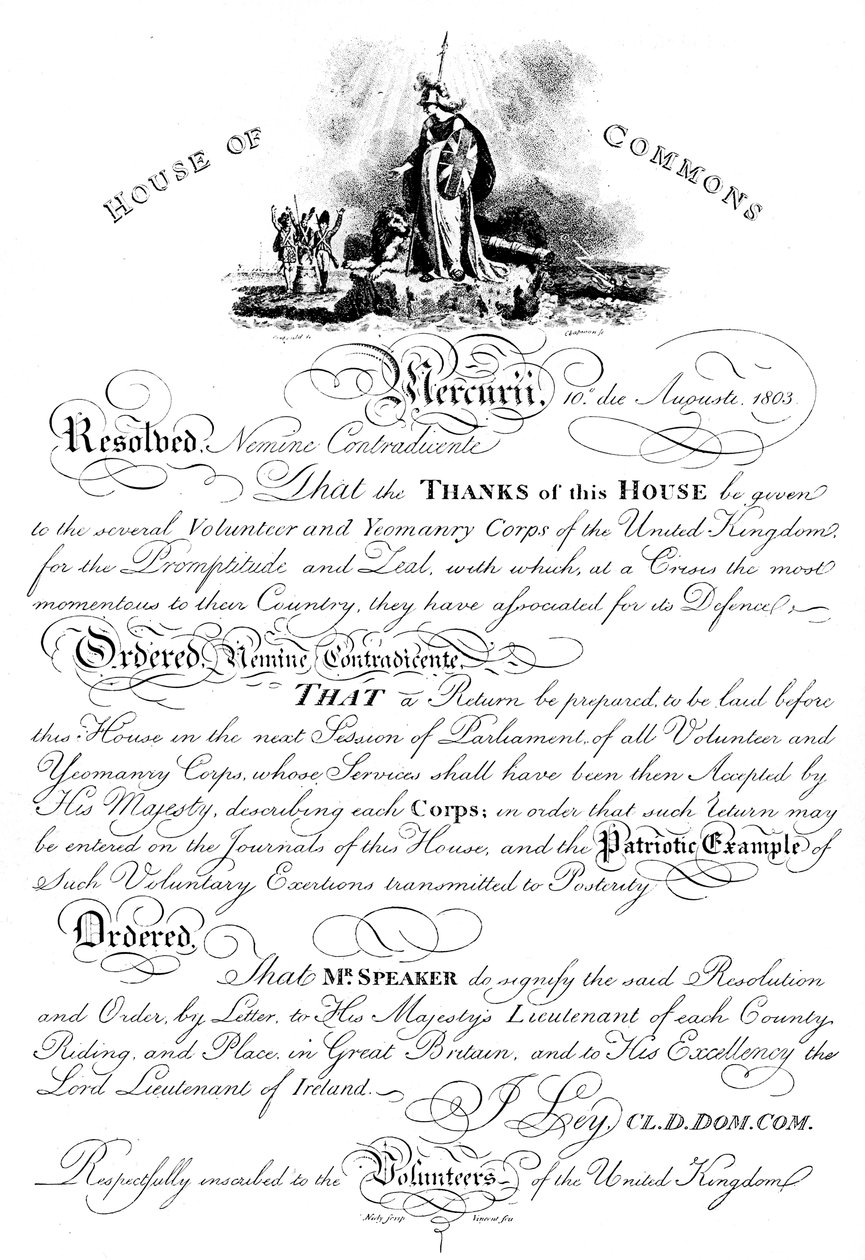 HOUSE OF COMMONS
Chapman sc
Mercurii, 10.º die Augusti. 1803.
Resolved, Nemine Contradicente
That the THANKS of this HOUSE be given
to the several Volunteer and Yeomanry Corps of the United Kingdom,
for the Promptitude and Zeal, with which, at a Crisis the most
momentous to their Country, they have aſsociated for its Defence;
Ordered, Nemine Contradicente,
THAT a Return be prepared, to be laid before
this House in the next Seſsion of Parliament, of all Volunteer and
Yeomanry Corps, whose Services shall have been then Accepted by
His Majesty, describing each Corps; in order that such Return may
be entered on the Journals of this House, and the Patriotic Example of
Such Voluntary Exertions transmitted to Posterity
Ordered,
That Mr. SPEAKER do signify the said Resolution
and Order, by Letter, to His Majesty's Lieutenant of each County
Riding, and Place, in Great Britain, and to His Excellency the
Lord Lieutenant of Ireland.
J Ley, CL.D.DOM.COM.
Respectfully inscribed to the Volunteers of the United Kingdom
Vincent scu